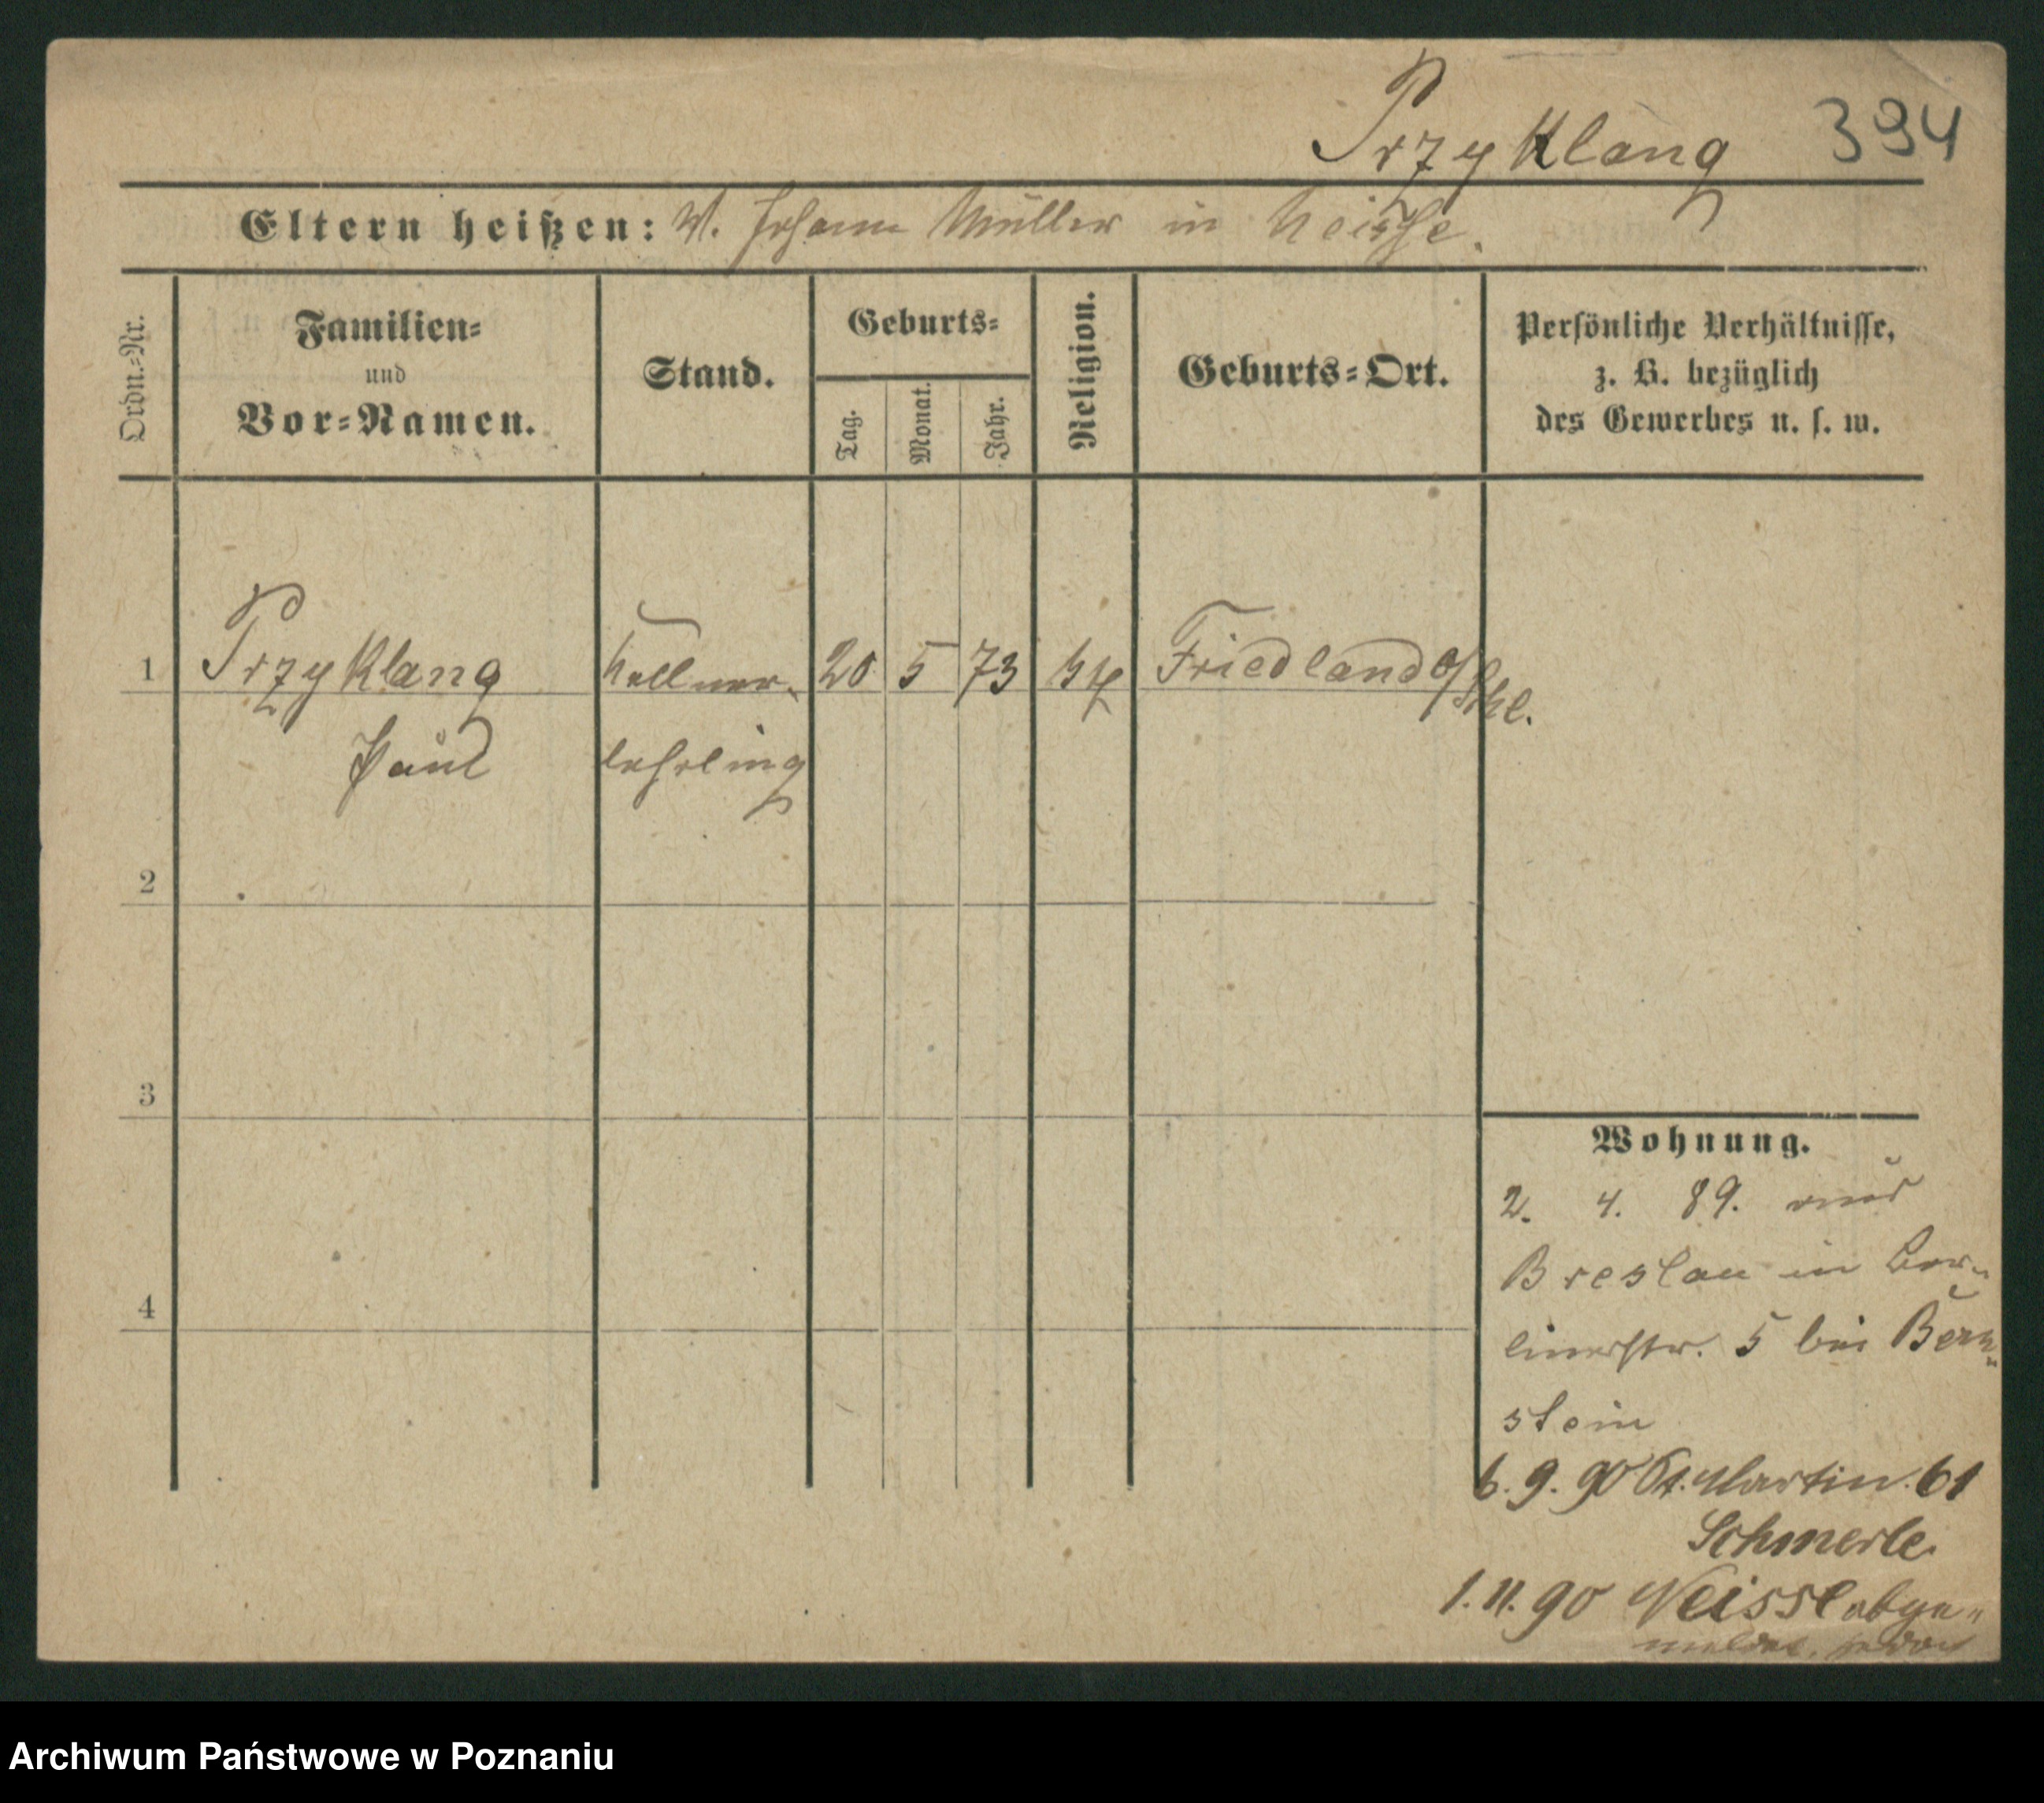 Przyklang 394
Eltern heißen: V. Johann Müller in Neisse.
Ordn.=Nr.
Familien=
und
Vor=Namen.
Stand.
Geburts=
Tag.
Monat.
Jahr.
Religion.
Geburts=Ort.
Persönliche Verhältnisse,
z. B. bezüglich
des Gewerbes u. s. w.
1 Przyklang Kellner- 20 5 73 Friedland o/Schl.
Paul lehrling
2
3
4
Wohnung.
2. 4. 89. aus
Breslau in Ber-
linerstr. 5 bei Bern-
stein
6. 9. 90 St. Martin. 61
Schmerle.
1. 11. 90 Neisse abge-
meldet, jedoch
Archiwum Państwowe w Poznaniu